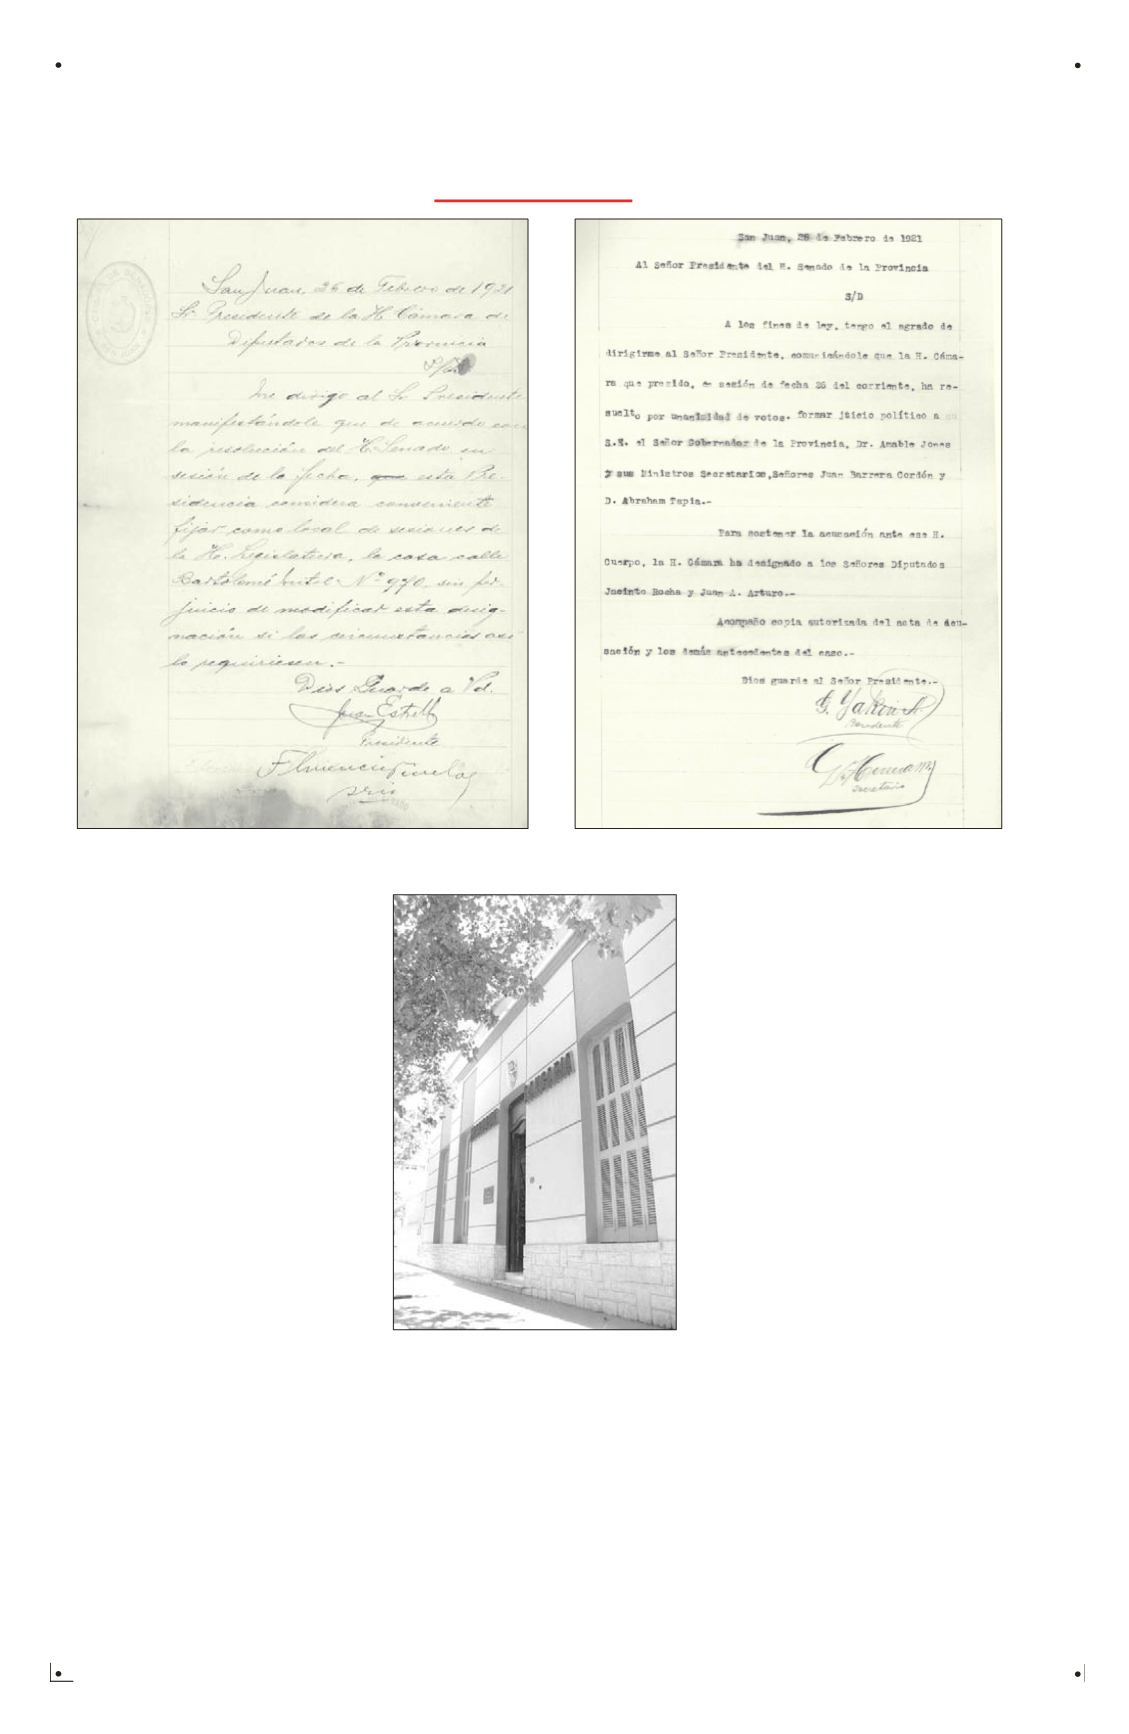 San Juan, 26 de Febrero de 1921
Sr. Presidente de la H. Cámara de
Diputados de la Provincia
S/D
Me dirijo al Sr. Presidente
manifestándole que de acuerdo con
la resolución del H. Senado en
sesión de la fecha, que esta Pre-
sidencia considera conveniente
fijar como local de sesiones de
la H. Legislatura, la casa calle
Bartolomé Mitre Nº 970, sin per-
juicio de modificar esta desig-
nación si las circunstancias así
lo requiriesen.-
Dios Guarde a Vd.
Juan Estrella
Presidente
CAMARA DE SENADORES
SAN JUAN
San Juan, 26 de Febrero de 1921
Al Señor Presidente del H. Senado de la Provincia
S/D
A los fines de ley, tengo el agrado de
dirigirme al Señor Presidente, comunicándole que la H. Cáma-
ra que presido, en sesión de fecha 26 del corriente, ha re-
suelto por unanimidad de votos. formar jticio político a su
S.E. el Señor Gobernador de la Provincia, Dr. Amable Jones
y sus Ministros Secretarios,Señores Juan Barrera Cordón y
D. Abraham Tapia.-
Para sostener la acusación ante ese H.
Cuerpo, la H. Cámara ha designado a los Señores Diputados
Jacinto Rocha y Juan A. Arturo.-
Acompaño copia autorizada del acta de acu-
sación y los demás antecedentes del caso.-
Dios guarde al Señor Presidente.-
Presidente
Secretario